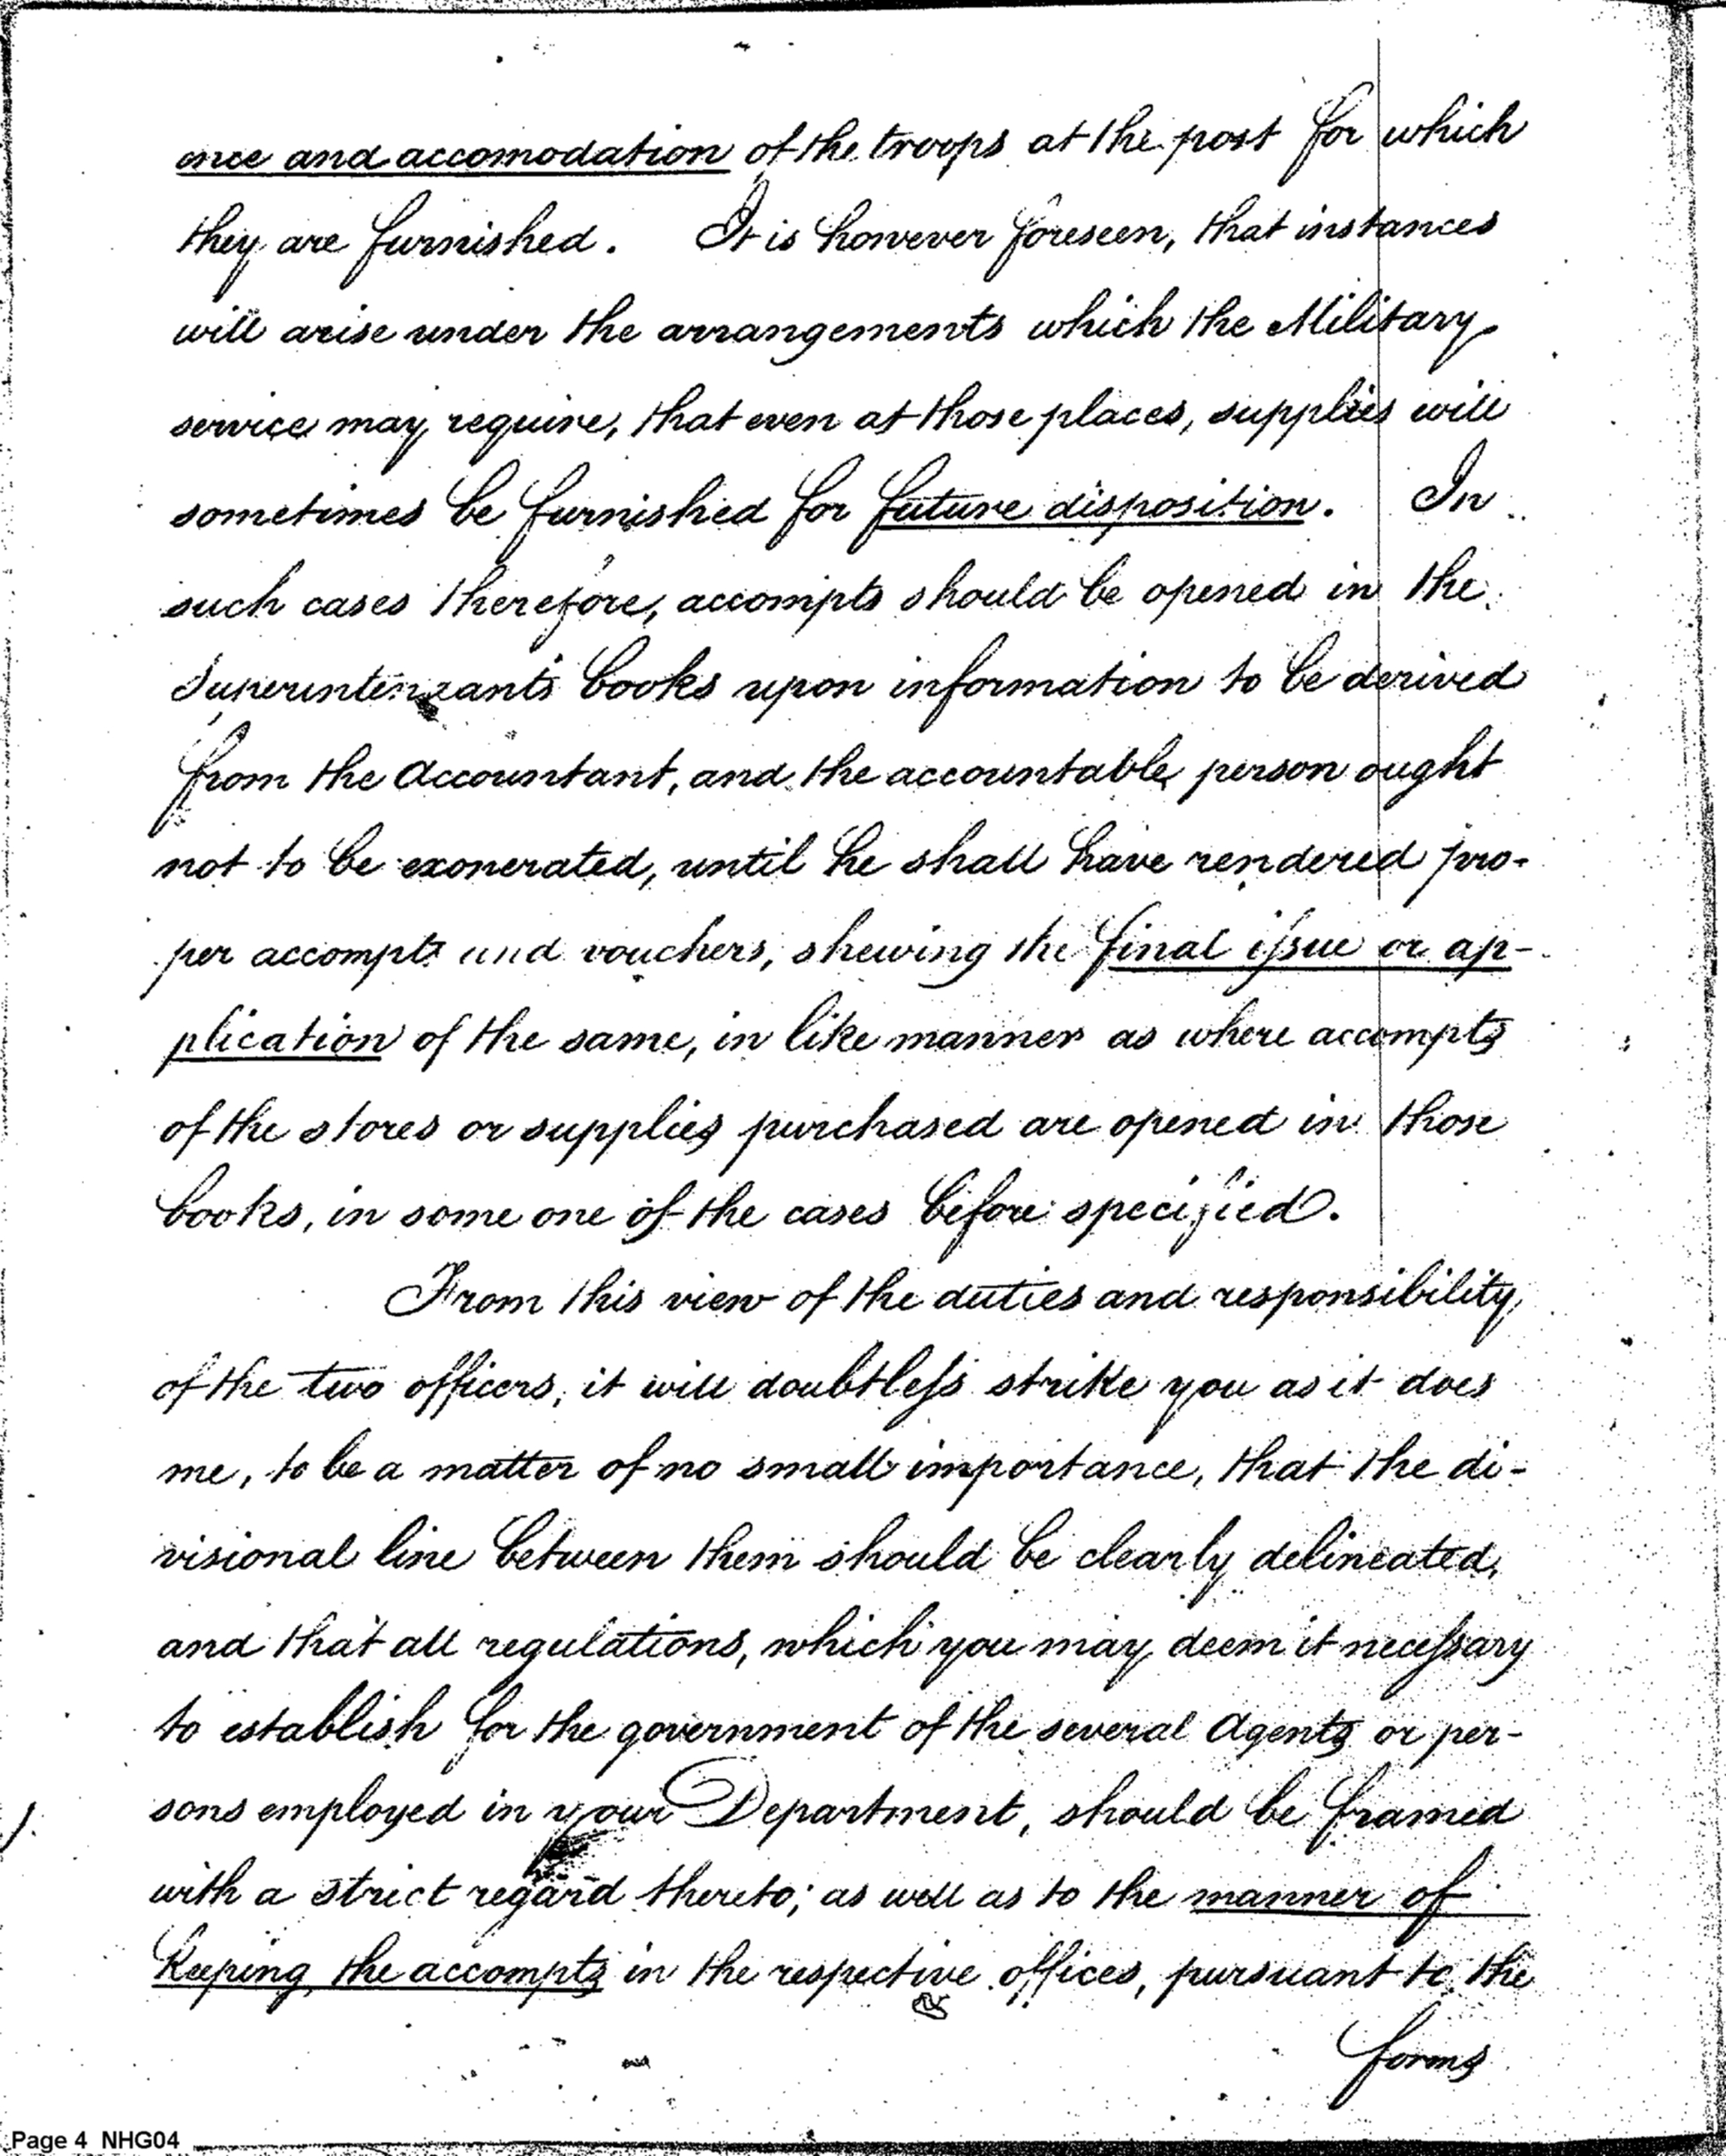 ence and accomodation of the troops at the post for which
they are furnished. It is however foreseen, that instances
will arise under the arrangements which the Military
service may require, that even at those places, supplies will
sometimes be furnished for future disposition. In
such cases therefore, accompts should be opened in the
Superintendants books upon information to be derived
from the Accountant, and the accountable person ought
not to be exonerated, until he shall have rendered pro-
per accompts and vouchers, shewing the final issue or ap-
plication of the same, in like manner as where accompts
of the stores or supplies purchased are opened in those
books, in some one of the cases before specified.
From this view of the duties and responsibility
of the two officers, it will doubtless strike you as it does
me, to be a matter of no small importance, that the di-
visional line between them should be clearly delineated,
and that all regulations, which you may deem it necessary
to establish for the government of the several Agents or per-
sons employed in your Department, should be framed
with a strict regard thereto; as well as to the manner of
keeping the accompts in the respective offices, pursuant to the
forms
Page 4 NHG04